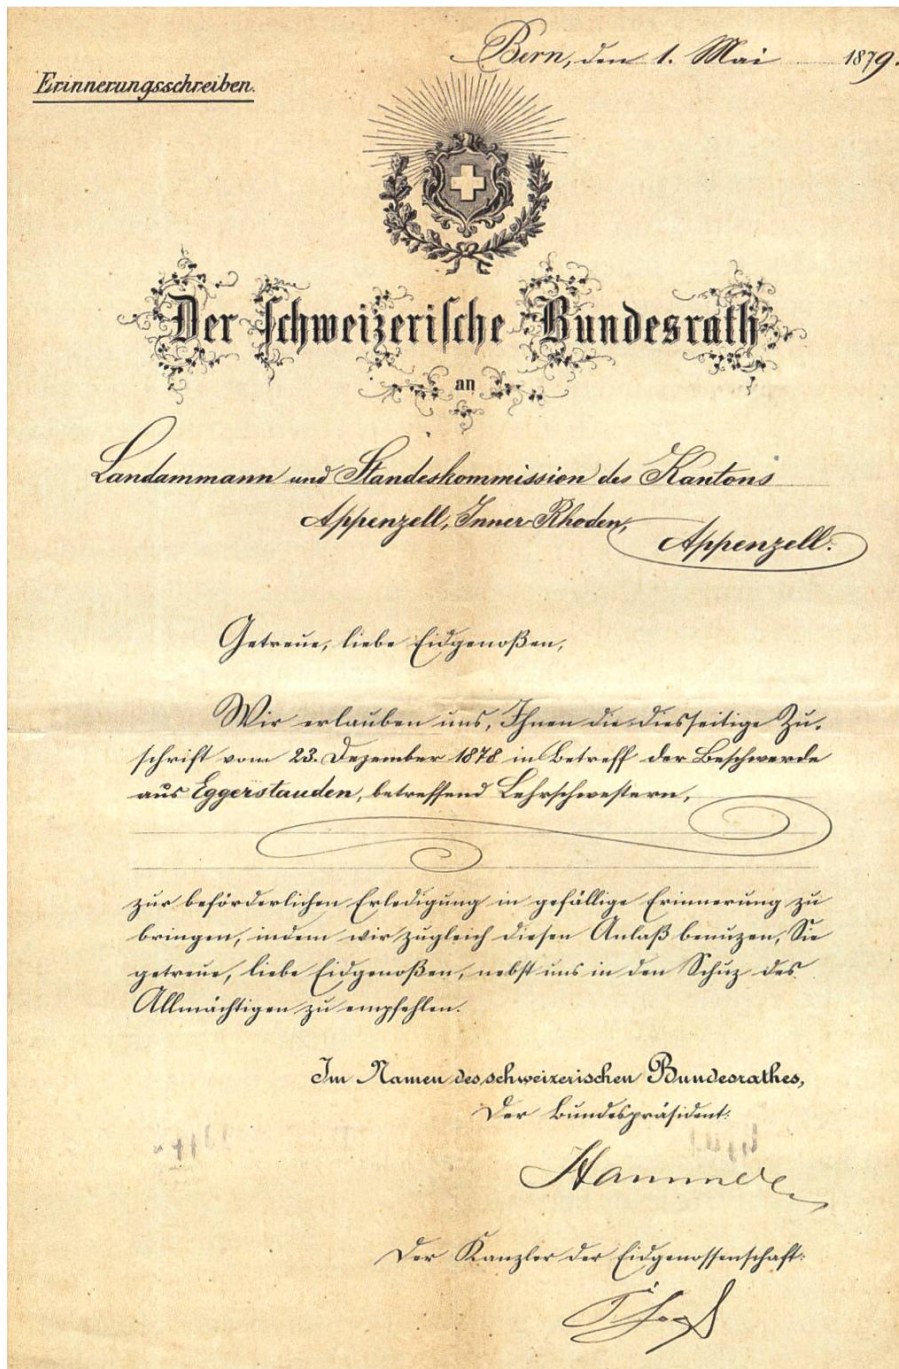 Bern, den 1. Mai 1879.
Erinnerungsschreiben.
Der Schweizerische Bundesrath
an
Landammann und Standeskommission des Kantons
Appenzell, Inner-Rhoden,
Appenzell.
Getreue, liebe Eidgenoßen,
Wir erlauben uns, Ihnen die diesseitige Zu-
schrift vom 23. Dezember 1878 in Betreff der Beschwerde
aus Eggerstauden, betreffend Lehrschwestern,
zur beförderlichen Erledigung in gefällige Erinnerung zu
bringen, indem wir zugleich diesen Anlaß benuzen, Sie
getreue, liebe Eidgenoßen, nebst uns in den Schuz des
Allmächtigen zu empfehlen.
Im Namen des schweizerischen Bundesrathes,
Der Bundespräsident:
Hammer
Der Kanzler der Eidgenossenschaft: